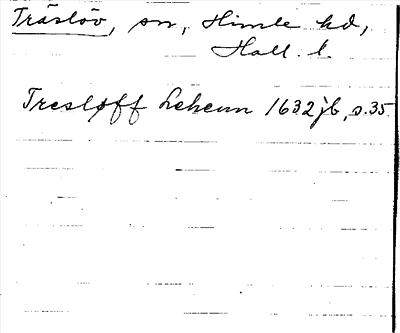 Träslöv, sn, Himle hd,
Hall. l.
Tresløff Lehenn 1632 jb, s. 35